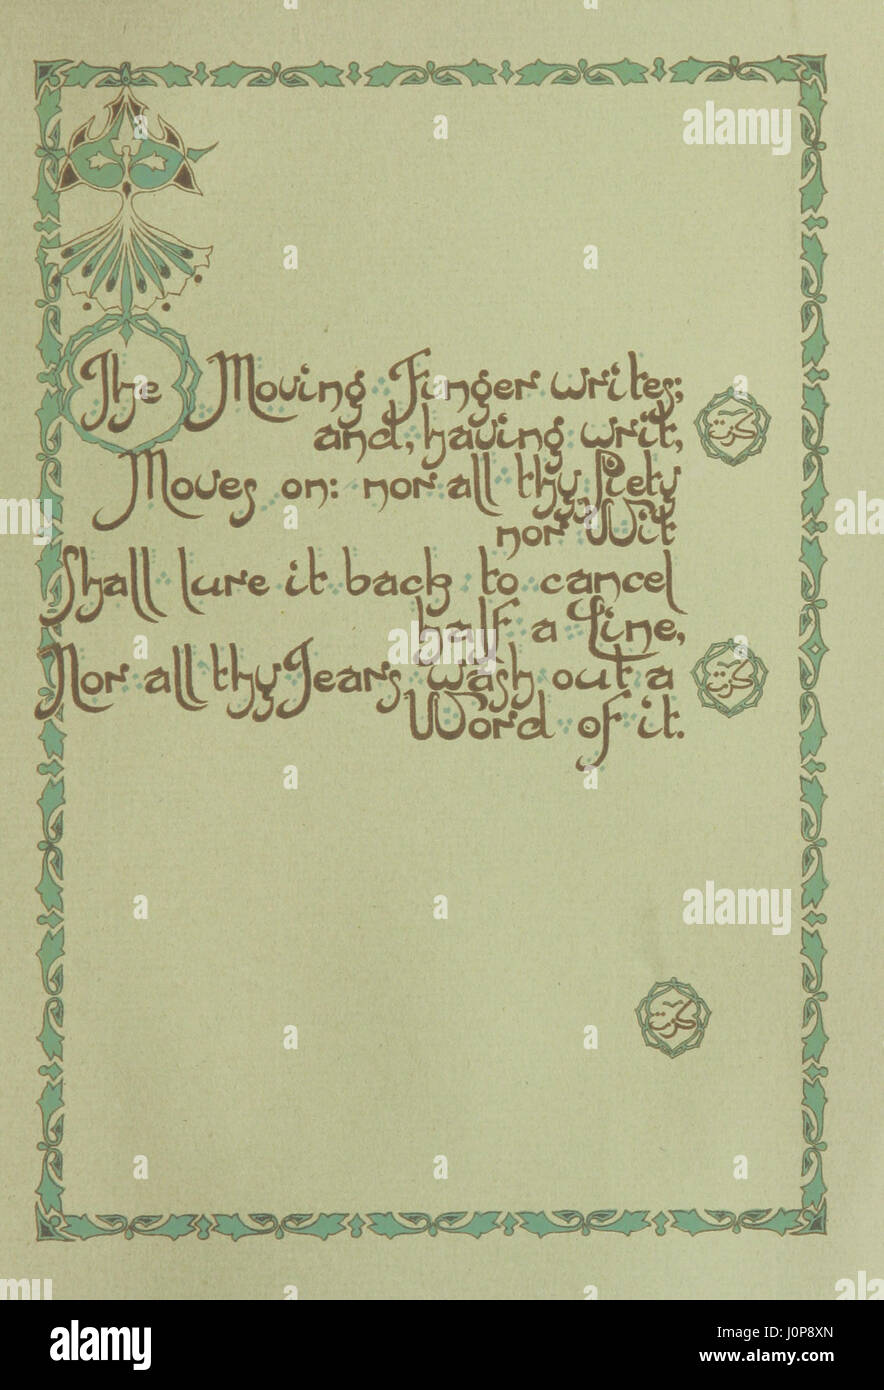 The Moving Finger writes;
and, having writ,
Moves on: nor all thy Piety
nor Wit
Shall lure it back to cancel
half a Line,
Nor all thy Tears wash out a
Word of it.
alamy
alamy
alamy
alamy
Image ID: J0P8XN
www.alamy.com